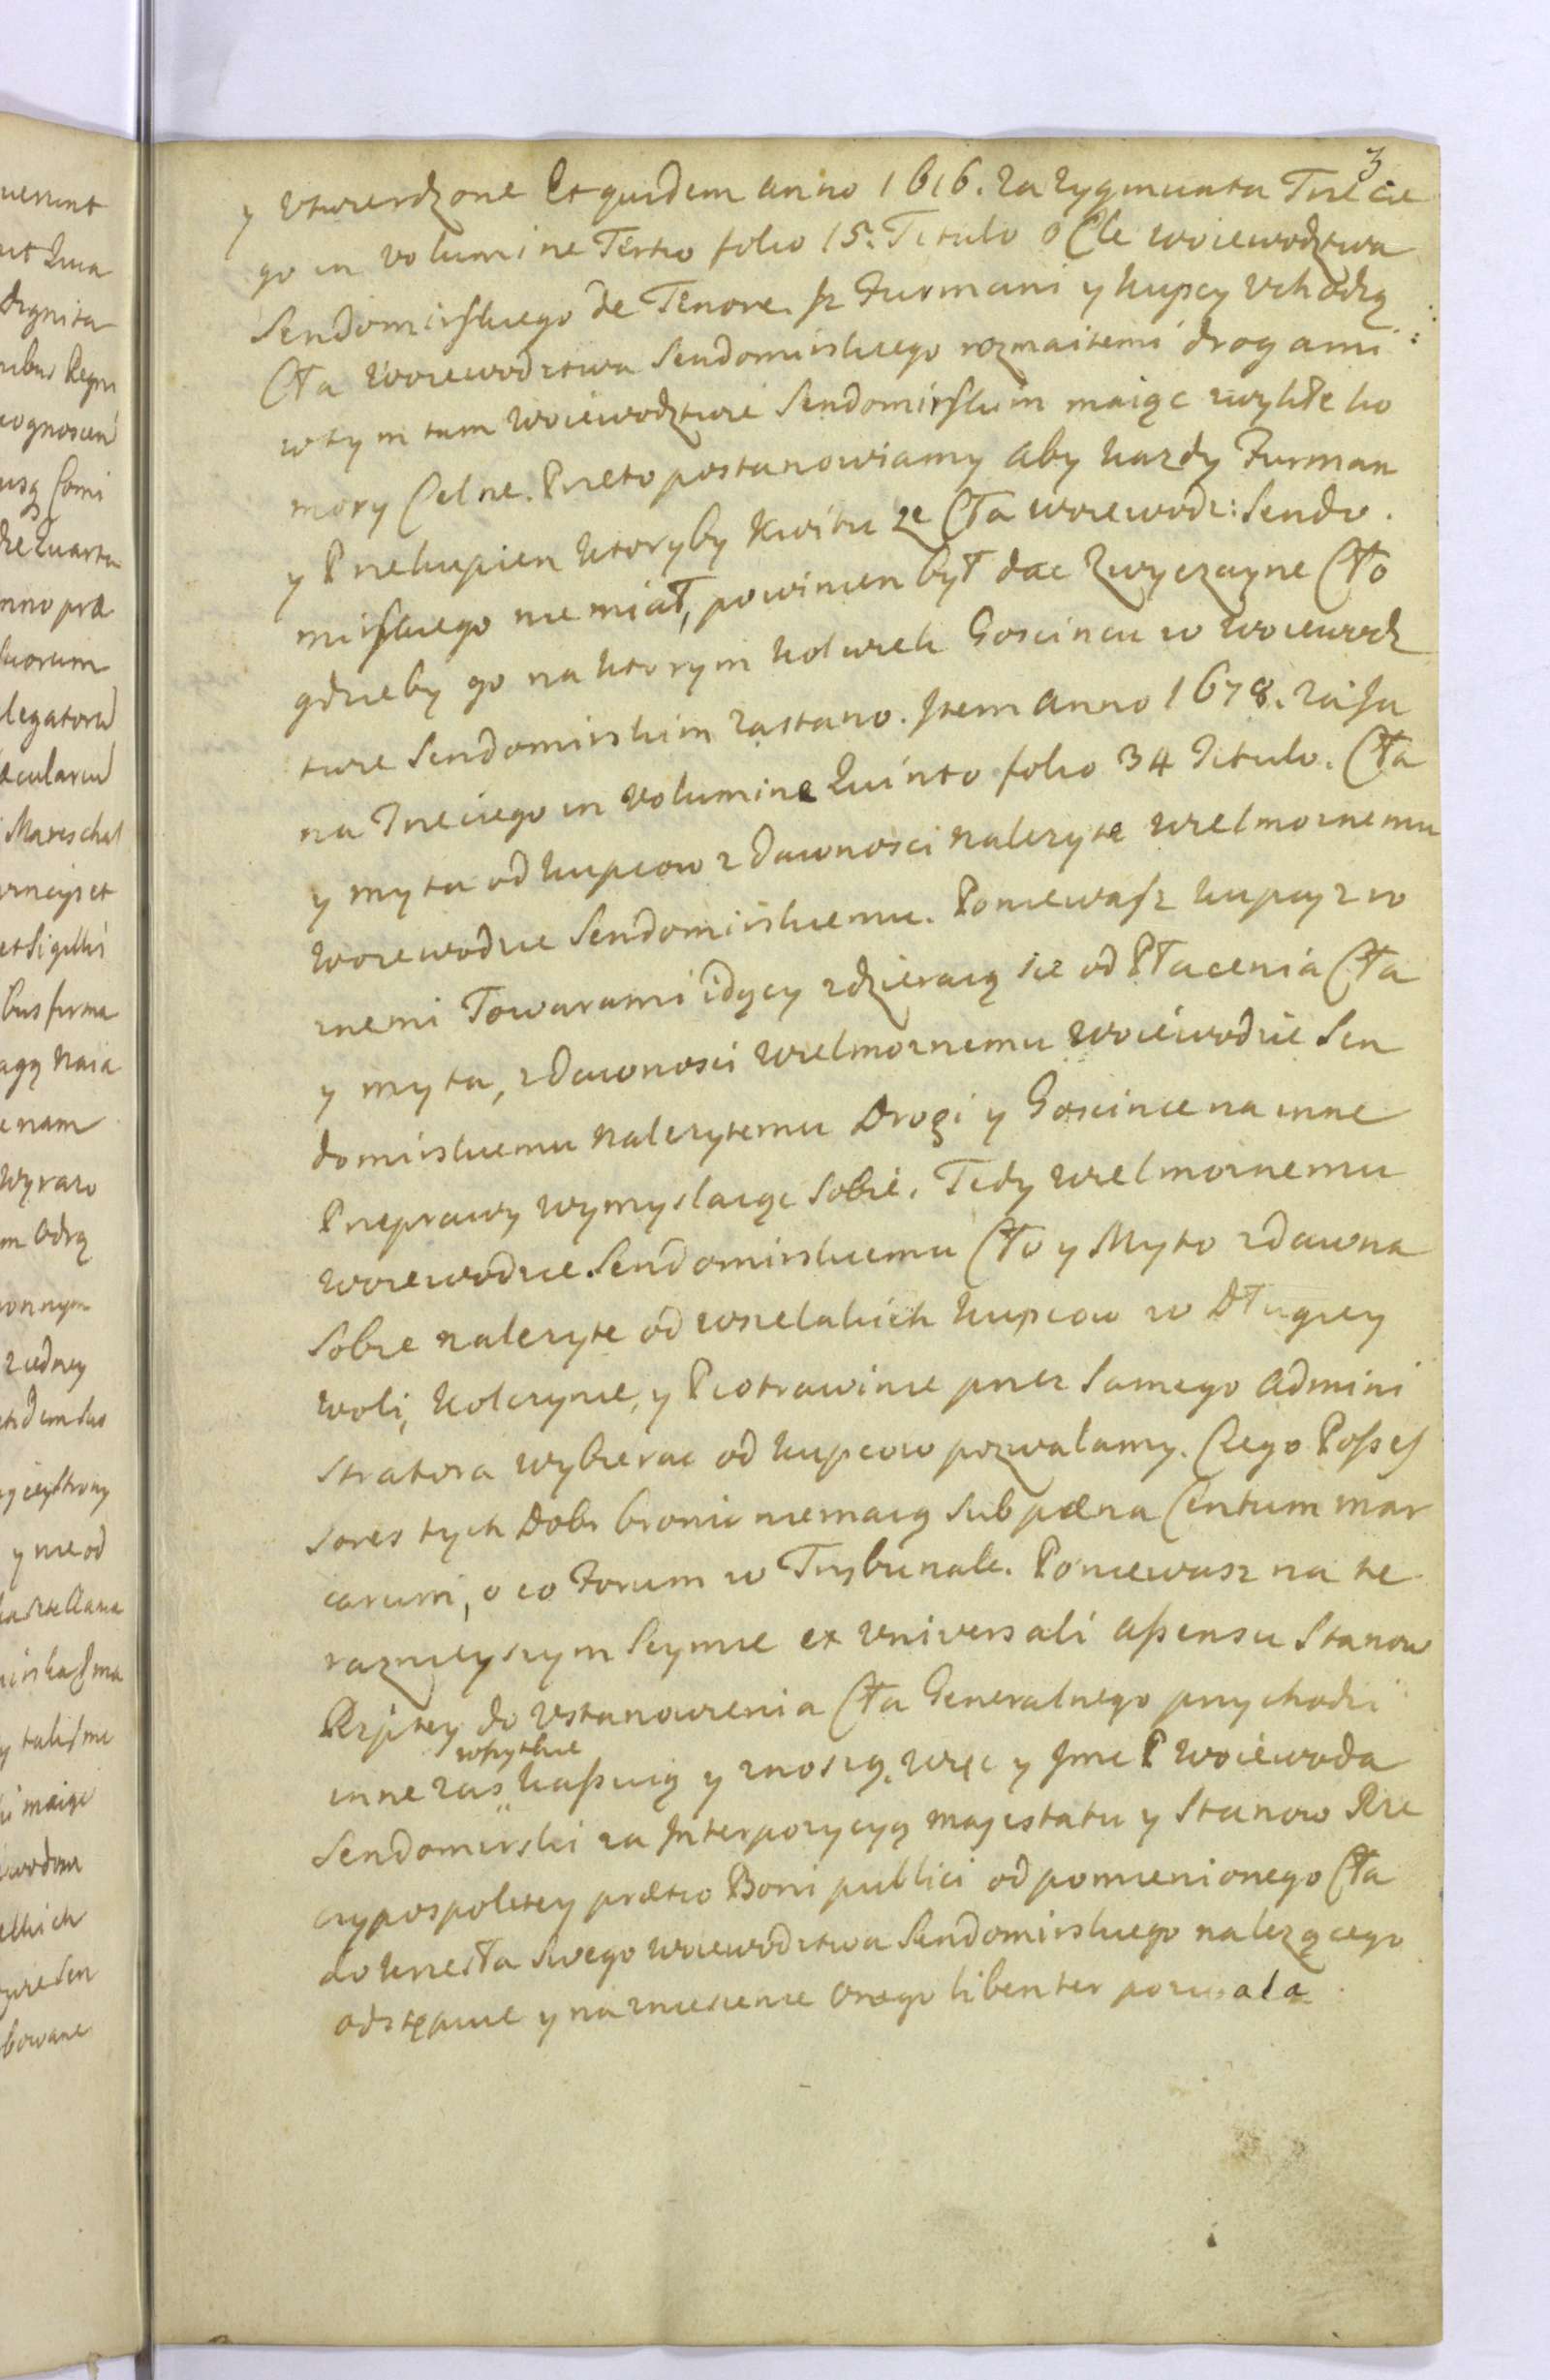 3
y utwierdzone Et quidem anno 1616. za Zygmunta Trzecie
go in volumine Tertio folio 15. Titulo o Cle woiewodztwa
Sendomirskiego de Tenore. Jz Furmani y kupcy uchodzą
Cła woiewodztwa Sendomirskiego rozmaitemi drogami
w tym tam woiewodztwie Sendomirskim maiąc zwykłe ko
mory Celne. Przeto postanowiamy aby kazdy Furman
y Przekupien ktoryby kwitu ze Cła woiewodz: Sendo.
mirskiego nie miał, powinien był dac zwyczayne Cło
gdzieby go na ktorym kolwiek Goscincu w woiewodz
twie Sendomirskim zastano. Jtem anno 1678. za Ja
na Trzeciego in volumine Quinto folio 34 Titulo. Cła
y myta od kupcow z dawnosci nalezyte wielmoznemu
woiewodzie Sendomirskiemu. Poniewasz kupcy z ro
znemi Towarami idący zdzieraią się od Płacenia Cła
y myta, z dawnosci wielmoznemu woiewodzie Sen
domirskiemu nalezytemu Drogi y Goscince na inne
Przeprawy wymyslaiąc sobie. Tedy wielmoznemu
woiewodzie Sendomirskiemu Cło y Myto z dawna
sobie nalezyte od wszelakich kupcow w Długiey
woli, kolczynie, y Piotrawinie przez samego admini
stratora wybierac od kupcow pozwalamy. Czego Posses
sores tych Dobr bronic niemaią sub pæna Centum mar
carum, o co Forum w Trybunale. Poniewasz na te
raznieyszym seymie ex universali assensu Stanow
Rzptey do ustanowienia Cła Generalnego przychodzi
wszytkie
inne zas kassuią y znoszą, więc y Jmc P woiewoda
Sendomirski za Jnterpozycyą majestatu y Stanow Rze
czypospolitey prætio Boni publici od pomienionego Cła
do krzesła swego woiewodztwa Sendomirskiego nalezącego
odstępuie y na zniesienie onego libenter pozwala